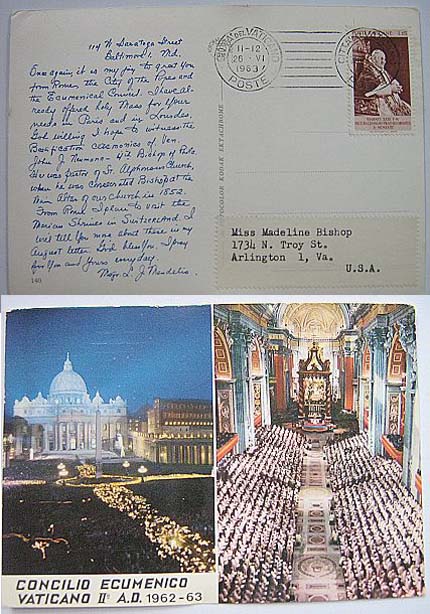 119 W. Saratoga Street
Baltimore 1, Md.
Once again, it is my joy to greet you
from Rome, the City of the Popes and
the Ecumenical Council. I have al-
ready offered holy Mass for your
needs in Paris and in Lourdes.
God willing I hope to witness the
Beatification ceremonies of Ven.
John J. Neumann - 4th Bishop of Phila.
He was pastor of St. Alphonsus Church,
when he was consecrated Bishop at the
Main Altar of our Church in 1852.
From Rome I plan to visit the
Marian Shrines in Switzerland. I
will tell you more about these in my
August letter. God bless you. I pray
for You and Yours everyday.
Msgr. L. J. Mendelis
140
COLOR KODAK EKTACHROME
CITTÀ DEL VATICANO
11-12
26 VI
1963
POSTE
Miss Madeline Bishop
1734 N. Troy St.
Arlington 1, Va.
U.S.A.
CONCILIO ECUMENICO
VATICANO IIº A.D. 1962-63